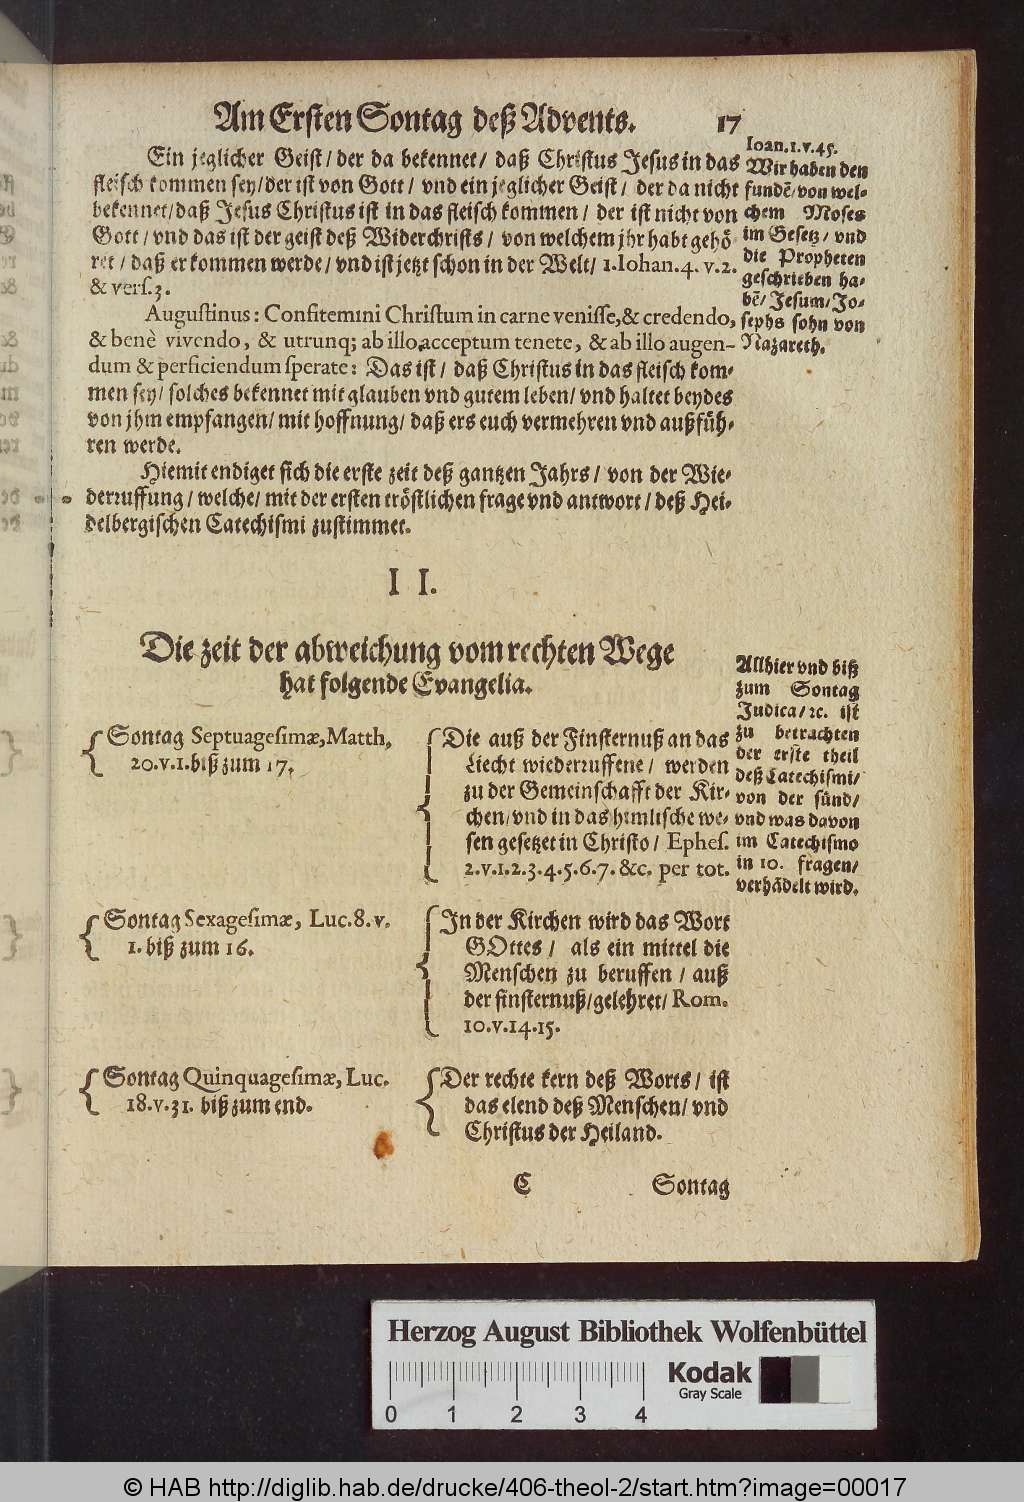 Am Ersten Sontag deß Advents. 17
Ein jeglicher Geist / der da bekennet / daß Christus Jesus in das
fleisch kommen sey / der ist von Gott / vnd ein jeglicher Geist / der da nicht
bekennet / daß Jesus Christus ist in das fleisch kommen / der ist nicht von
Gott / vnd das ist der geist deß Widerchrists / von welchem jhr habt gehö-
ret / daß er kommen werde / vnd ist jetzt schon in der Welt / 1. Iohan. 4. v. 2.
& vers. 3.
Augustinus: Confitemini Christum in carne venisse, & credendo,
& benè vivendo, & utrunq; ab illo acceptum tenete, & ab illo augen-
dum & perficiendum sperate: Das ist / daß Christus in das fleisch kom-
men sey / solches bekennet mit glauben vnd gutem leben / vnd haltet beydes
von jhm empfangen / mit hoffnung / daß ers euch vermehren vnd außfüh-
ren werde.
Hiemit endiget sich die erste zeit deß gantzen Jahrs / von der Wie-
derruffung / welche / mit der ersten tröstlichen frage vnd antwort / deß Hei-
delbergischen Catechismi zustimmet.
Ioan. 1. v. 45.
Wir haben den
fundē / von wel-
chem Moses
im Gesetz / vnd
die Propheten
geschrieben ha-
bē / Jesum / Jo-
sephs sohn von
Nazareth.
II.
Die zeit der abweichung vom rechten Wege
hat folgende Evangelia.
Sontag Septuagesimæ, Matth.
20. v. 1. biß zum 17.
Die auß der Finsternuß an das
Liecht wiederruffene / werden
zu der Gemeinschafft der Kir-
chen / vnd in das himlische we-
sen gesetzet in Christo / Ephes.
2. v. 1. 2. 3. 4. 5. 6. 7. &c. per tot.
Allhier vnd biß
zum Sontag
Judica / ꝛc. ist
zu betrachten
der erste theil
deß Catechismi /
von der sünd /
vnd was davon
im Catechismo
in 10. fragen /
verhādelt wird.
Sontag Sexagesimæ, Luc. 8. v.
1. biß zum 16.
In der Kirchen wird das Wort
GOttes / als ein mittel die
Menschen zu beruffen / auß
der finsternuß / gelehret / Rom.
10. v. 14. 15.
Sontag Quinquagesimæ, Luc.
18. v. 31. biß zum end.
Der rechte kern deß Worts / ist
das elend deß Menschen / vnd
Christus der Heiland.
C Sontag
Herzog August Bibliothek Wolfenbüttel
0 1 2 3 4
Kodak
Gray Scale
© HAB http://diglib.hab.de/drucke/406-theol-2/start.htm?image=00017